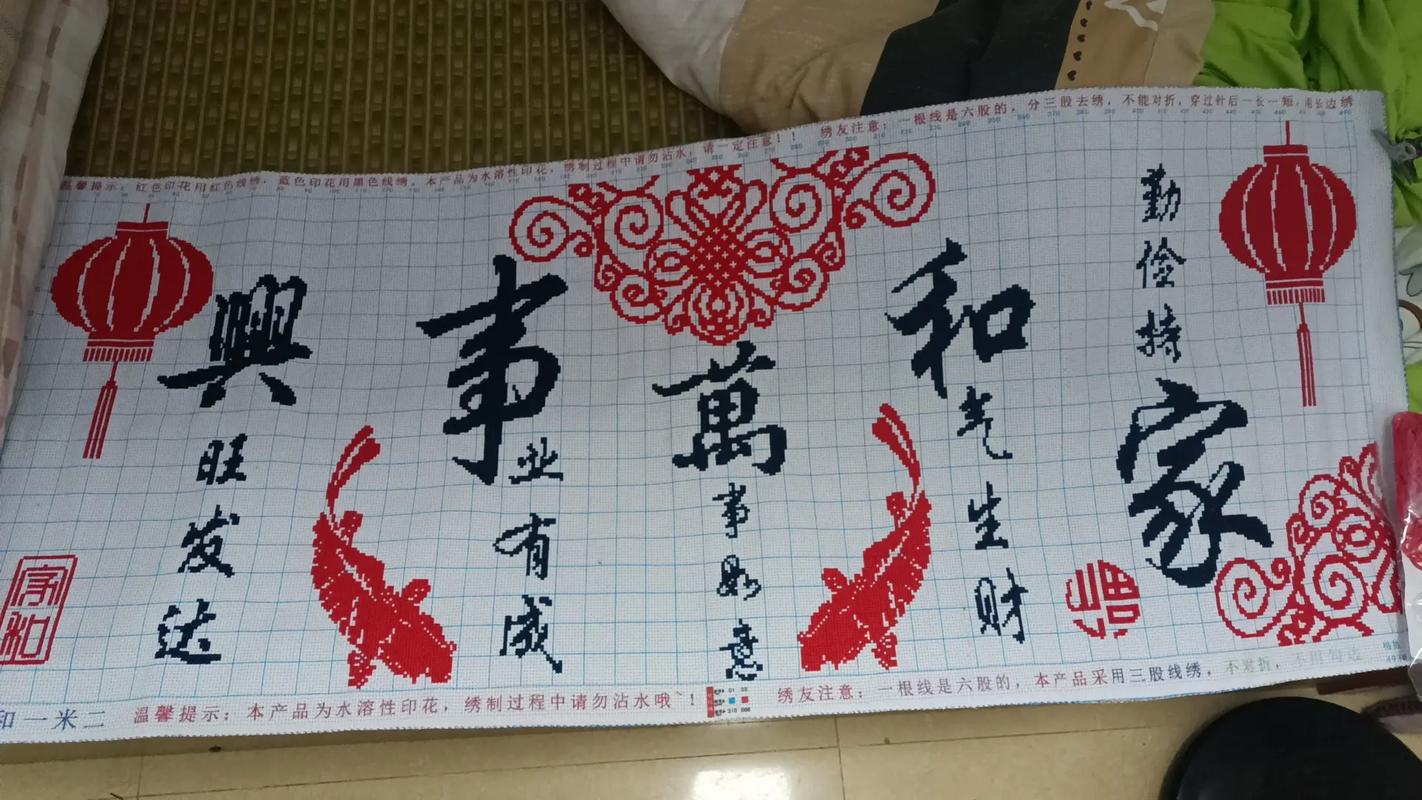 温馨提示：红色印花用红色线绣，蓝色印花用黑色线绣，本产品为水溶性印花，绣制过程中请勿沾水，请一定注意！！ 绣友注意：一根线是六股的，分三股去绣，不能对折，穿过针后一长一短，用长边绣
勤俭持家
和气生财
萬事如意
事业有成
興旺发达
福
家和
和 一米二 温馨提示：本产品为水溶性印花，绣制过程中请勿沾水哦~！ 绣友注意：一根线是六股的，本产品采用三股线绣，不对折，不用勾边